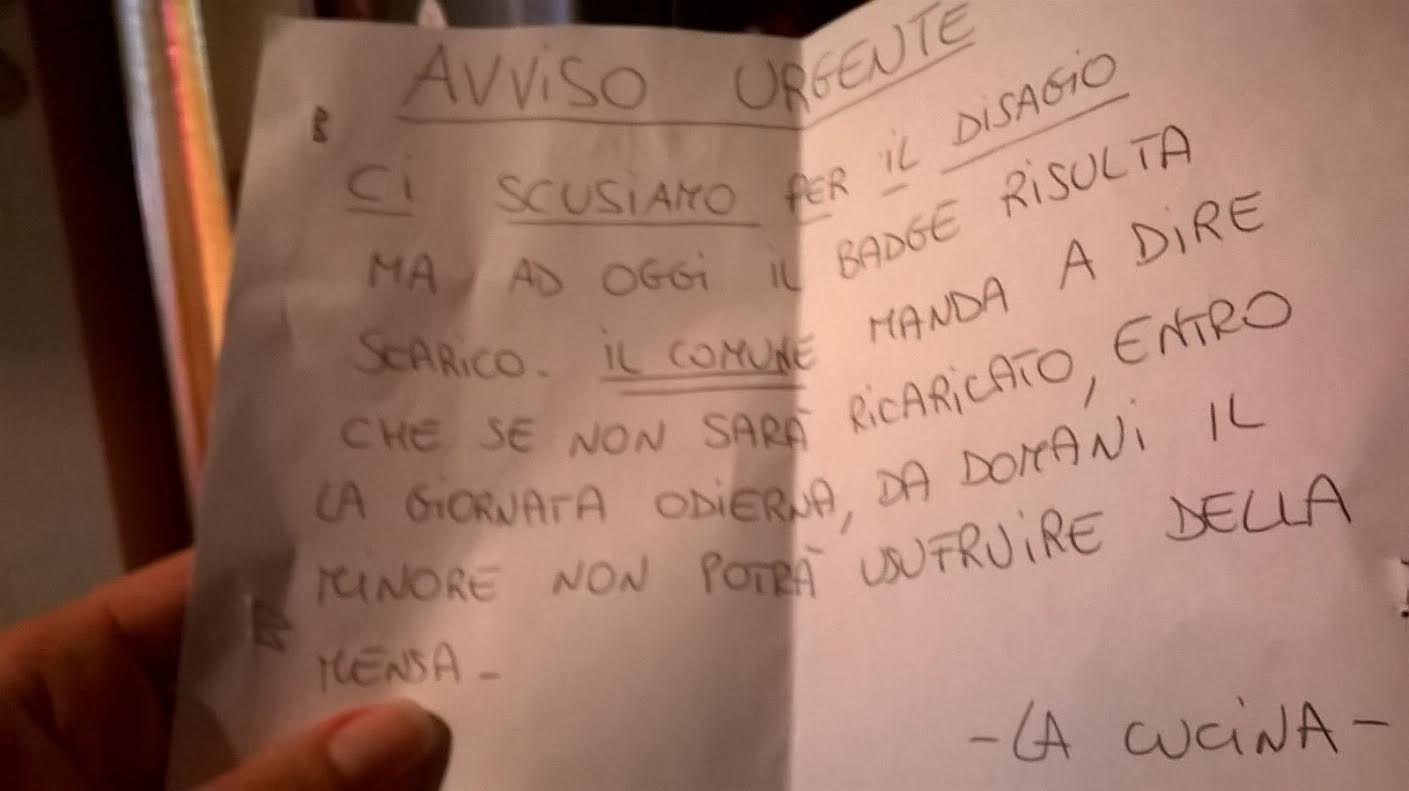 AVVISO URGENTE
CI SCUSIAMO PER IL DISAGIO
MA AD OGGI IL BADGE RISULTA
SCARICO. IL COMUNE MANDA A DIRE
CHE SE NON SARÀ RICARICATO, ENTRO
LA GIORNATA ODIERNA, DA DOMANI IL
MINORE NON POTRÀ USUFRUIRE DELLA
MENSA -
- LA CUCINA -